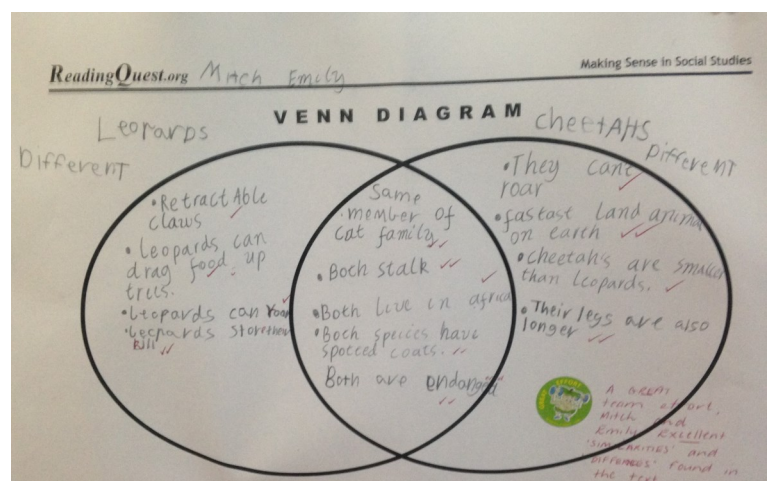 ReadingQuest.org Mitch Emily
Making Sense in Social Studies
VENN DIAGRAM
Leopards
Different
• Retractable
claws
• Leopards can
drag food up
trees.
• Leopards can roar
• Leopards store their
kill
Same
• member of
cat family
• Both stalk
• Both live in africa
• Both species have
spotted coats.
Both are
CheetAHS
Different
• They cant
roar
• fastest land animal
on earth
• cheetahs are smaller
than leopards.
• Their legs are also
longer
GREAT EFFORT
A GREAT
team effort,
Mitch and
Emily. Excellent
'similarities' and
'differences' found in
the text